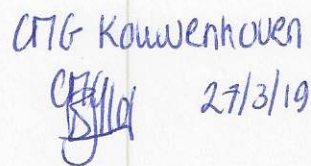 CMG Kouwenhoven
27/3/19